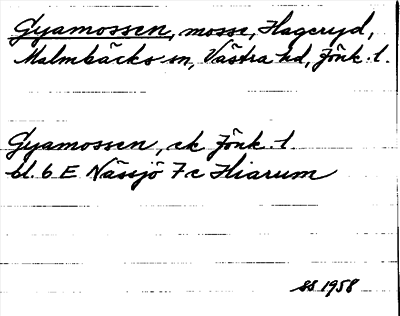 Gyamossen, mosse, Hageryd,
Malmbäcks sn, Västra hd, Jönk. l.
Gyamossen, ek Jönk. l
bl. 6 E Nässjö 7 c Hiarum
SS 1958